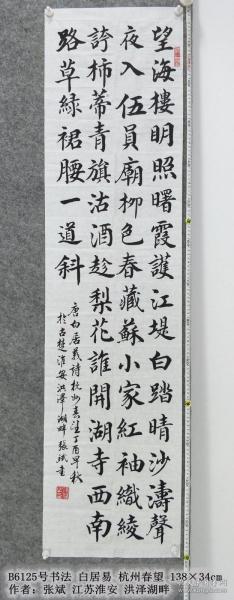 望海樓明照曙霞護江堤白踏晴沙濤聲
夜入伍員廟柳色春藏蘇小家紅袖織綾
誇柿蒂青旗沽酒趂梨花誰開湖寺西南
路草綠裙腰一道斜
唐白居易詩杭州春望丁酉早秋
於古楚淮安洪澤湖畔張斌書
B6125号书法 白居易 杭州春望 138×34cm
作者：张斌 江苏淮安 洪泽湖畔